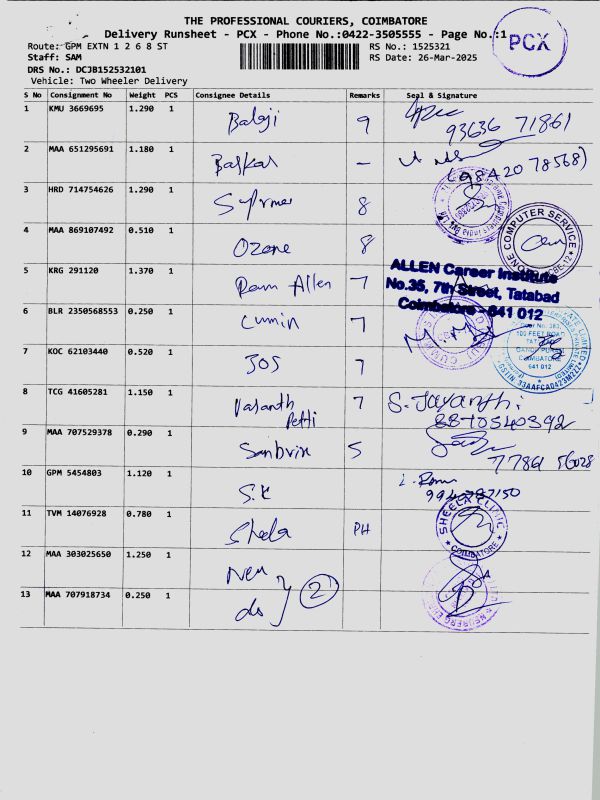 THE PROFESSIONAL COURIERS, COIMBATORE
Delivery Runsheet - PCX - Phone No.:0422-3505555 - Page No.:1
PCX
Route: GPM EXTN 1 2 6 8 ST
RS No.: 1525321
Staff: SAM
RS Date: 26-Mar-2025
DRS No.: DCJB152532101
Vehicle: Two Wheeler Delivery
S No Consignment No Weight PCS Consignee Details Remarks Seal & Signature
1 KMU 3669695 1.290 1 Balaji 9
93636 71861
2 MAA 651295691 1.180 1 Baskar -
(98420 78568)
3 HRD 714754626 1.290 1 8
4 MAA 869107492 0.510 1 Ozone 8
COMPUTER SERVICE
5 KRG 291120 1.370 1 Ram Allen 7
ALLEN Career Institute
No.35, 7th Street, Tatabad
Coimbatore - 641 012
6 BLR 2350568553 0.250 1 Cumin 7
100 FEET ROAD
COIMBATORE
641 012
7 KOC 62103440 0.520 1 JOS 7
8 TCG 41605281 1.150 1 Vasanth 7 S. Jayanthi
8870540392
9 MAA 707529378 0.290 1 5
77861 56028
10 GPM 5454803 1.120 1 S.K
11 TVM 14076928 0.780 1 Sheela PH
SHEELA CLINIC
COIMBATORE
12 MAA 303025650 1.250 1
13 MAA 707918734 0.250 1 do 2